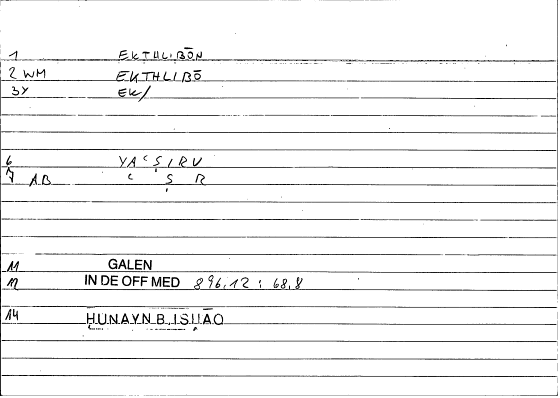 1 EKTHLIBŌN
2 WM EKTHLIBŌ
3 Y EK/
6 YAʿṢIRU
7 AB ʿ Ṣ R
11 GALEN
12 IN DE OFF MED 896,12 : 68,8
14 ḤUNAYN B. ISḤĀQ